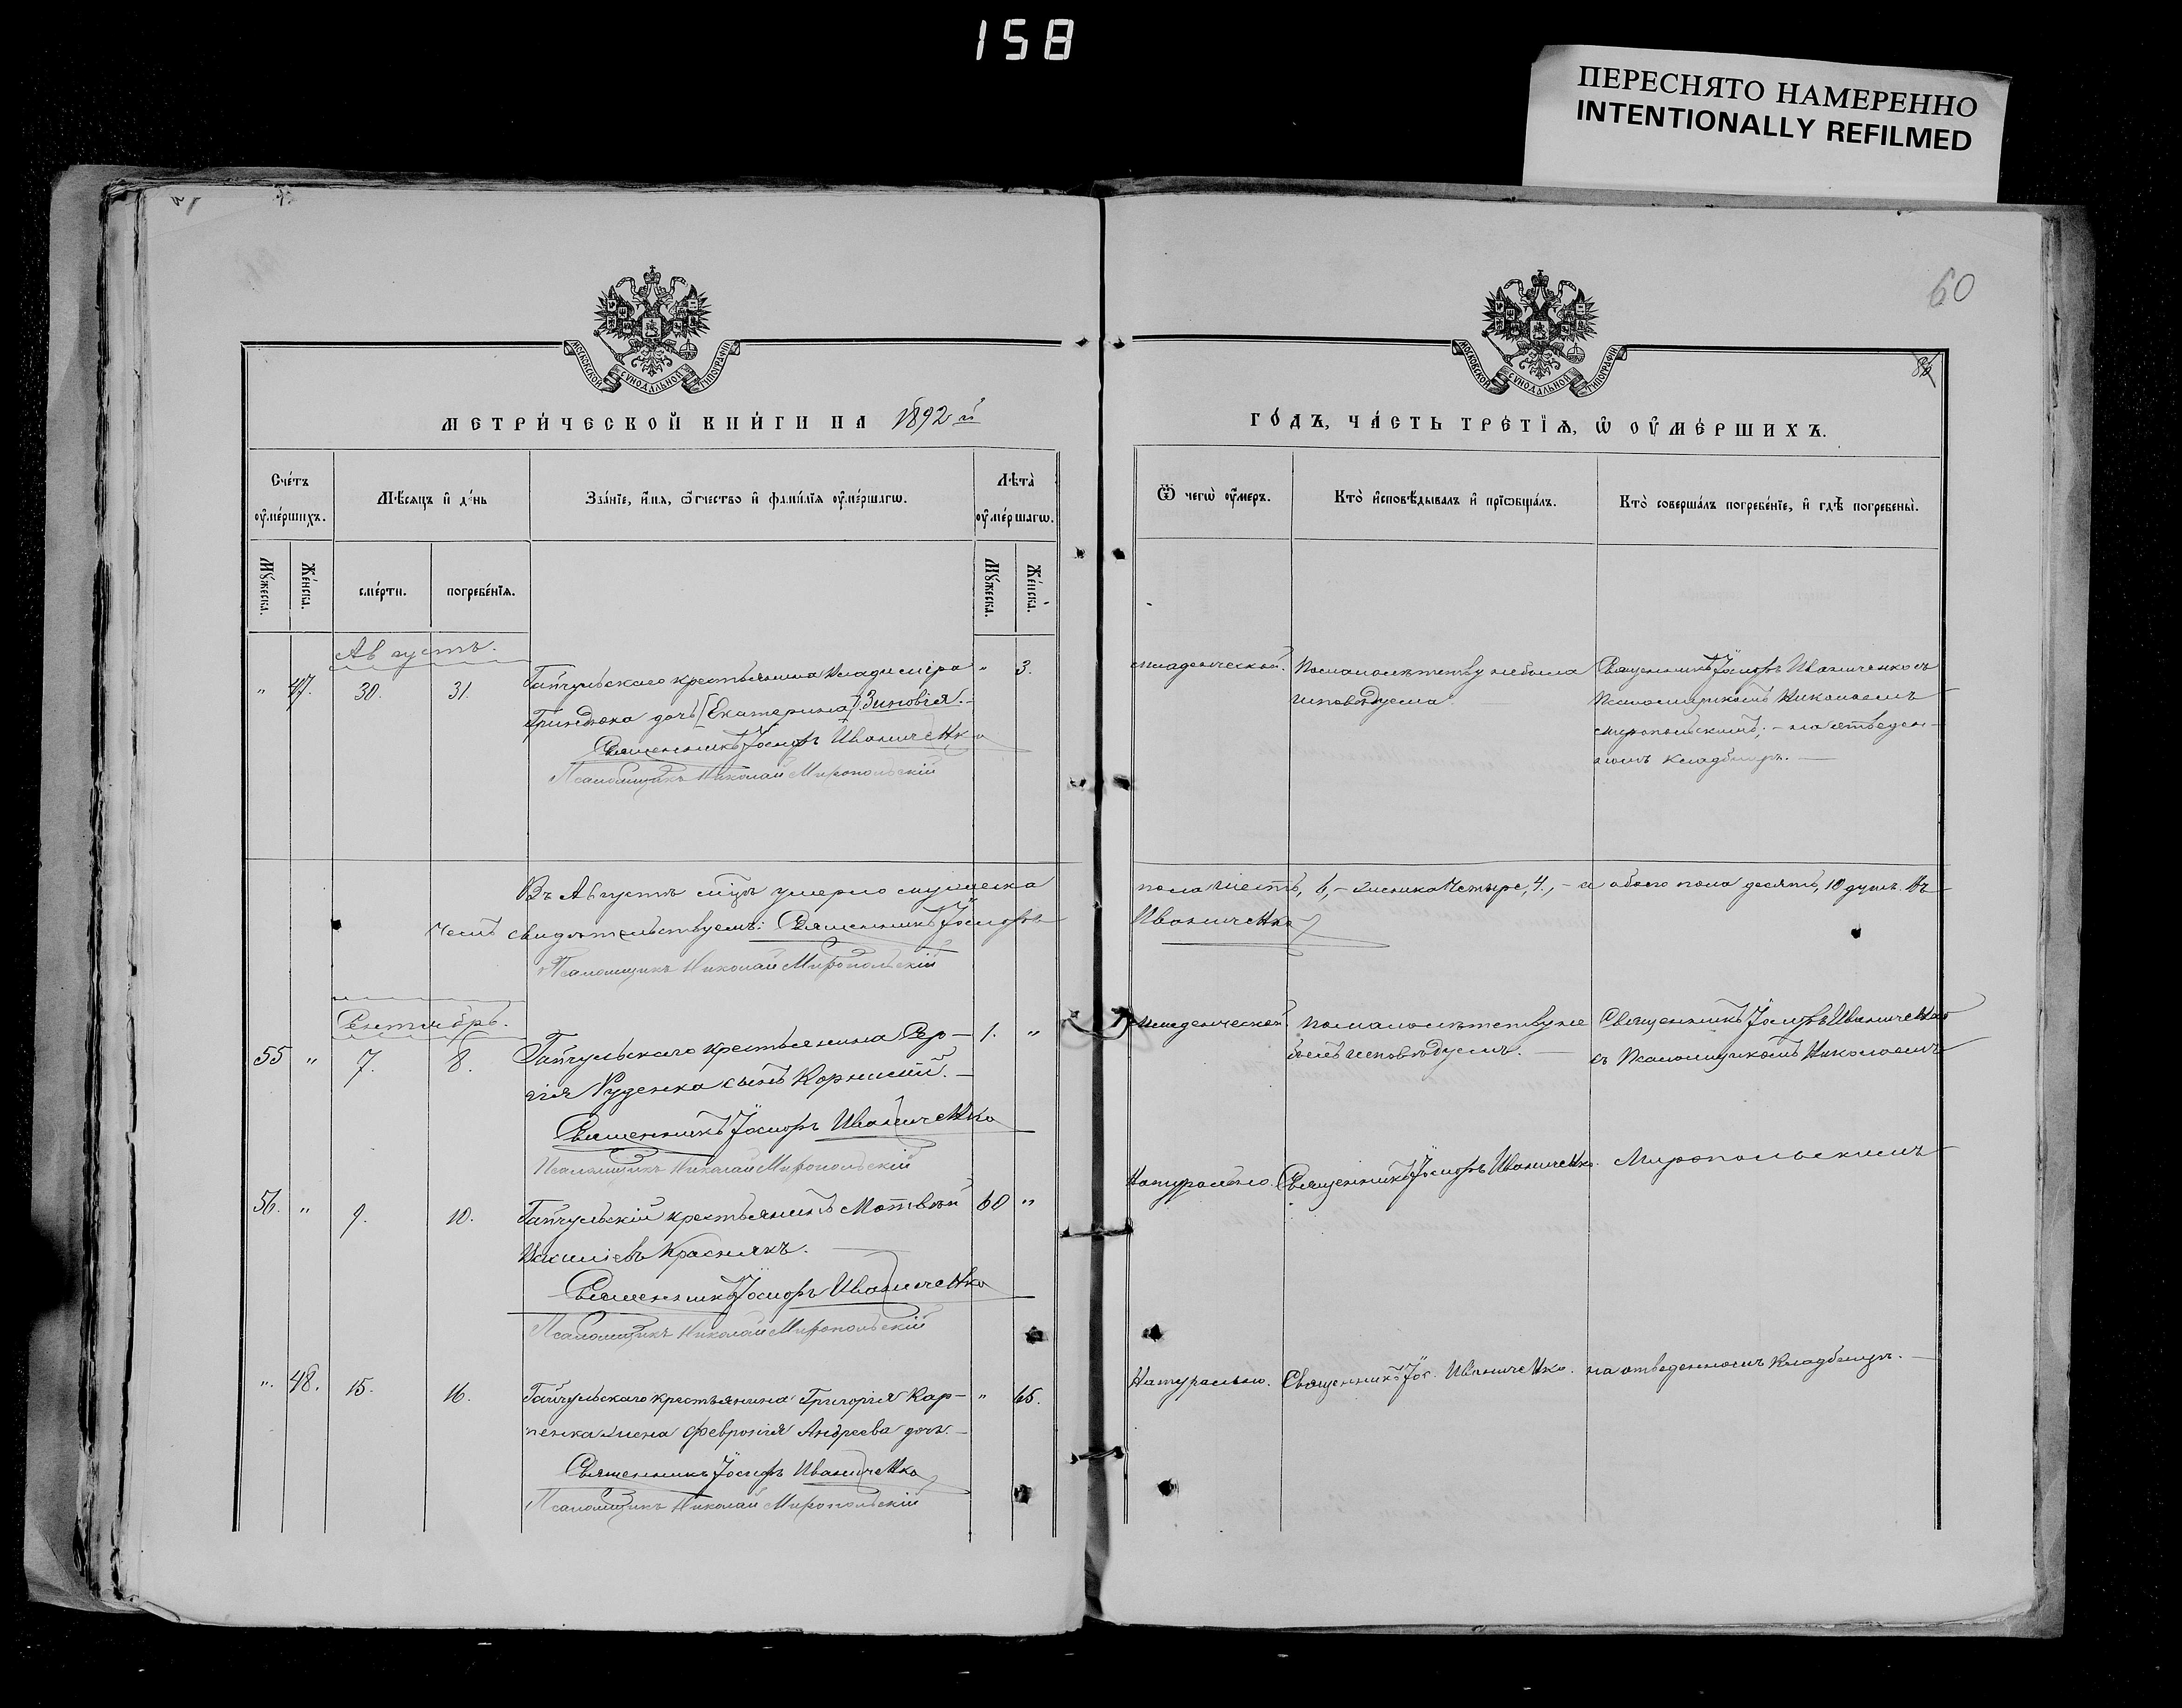 158
ПЕРЕСНЯТО НАМЕРЕННО
INTENTIONALLY REFILMED
60
86
МОСКОВСКОЙ СѴНОДАЛЬНОЙ ТИПОГРАФІИ
МОСКОВСКОЙ СѴНОДАЛЬНОЙ ТИПОГРАФІИ
МЕТРИ́ЧЕСКОЙ КНИ́ГИ НА 1892 й
ГО́ДЪ, ЧА́СТЬ ТРЕ́ТІѦ, Ѡ ОУ҆МЕ́РШИХЪ.
Сче́тъ оу҆ме́ршихъ.
Мѣ́сяцъ и҆ де́нь
Зва́нїе, и҆́мѧ, ѻ҆́тчество и҆ фамѝлїѧ оу҆ме́ршагѡ.
Лѣ́та оу҆ме́ршагѡ.
Ѿ чегѡ̀ оу҆́меръ.
Кто̀ и҆сповѣ́дывалъ и҆ прїѡбща́лъ.
Кто̀ соверша́лъ погребе́нїе, и҆ гдѣ̀ погребены̀.
Мꙋ́жеска.
Же́нска.
сме́рти.
погребе́нїѧ.
Мꙋ́жеска.
Же́нска.
Августъ.
" 47. 30. 31.
Гайчульскаго крестьянина Владиміра " 3.
Гриндюка дочь [Екатерина] Зиновія.
Священникъ Іосифъ Иваниченко
Псаломщикъ Николай Миропольскій
младенческой. По малолѣтству небыла Священникъ Іосифъ Иваниченко съ
исповѣдуема Псаломщикомъ Николаемъ
Миропольскимъ; - на отведен-
номъ кладбищѣ.
Въ Августѣ мцѣ умерло мужеска пола шесть, 6, - женска четыре, 4, - а обоего пола десять, 10 душъ. Въ
чемъ свидѣтельствуемъ: Священникъ Іосифъ Иваниченко
Псаломщикъ Николай Миропольскій
Сентябрь.
55 " 7. 8. Гайчульскаго крестьянина Сер- 1. "
гія Руденка сынъ Корнилій.
Священникъ Іосифъ Иваниченко
Псаломщикъ Николай Миропольскій
младенческой по малолѣтству не Священникъ Іосифъ Иваниченко
былъ исповѣдуемъ. съ Псаломщикомъ Николаемъ
Миропольскимъ
56. " 9. 10. Гайчульскій крестьянинъ Матвѣй 60 "
Василіевъ Краснякъ.
Священникъ Іосифъ Иваниченко
Псаломщикъ Николай Миропольскій
Натурально. Священникъ Іосифъ Иваниченко.
". 48. 15. 16. Гайчульскаго крестьянина Григорія Кар- " 65.
пенка жена Февронія Андреева дочь.
Священникъ Іосифъ Иваниченко
Псаломщикъ Николай Миропольскій
Натурально. Священникъ Іос. Иваниченко. на отведенномъ кладбищѣ.